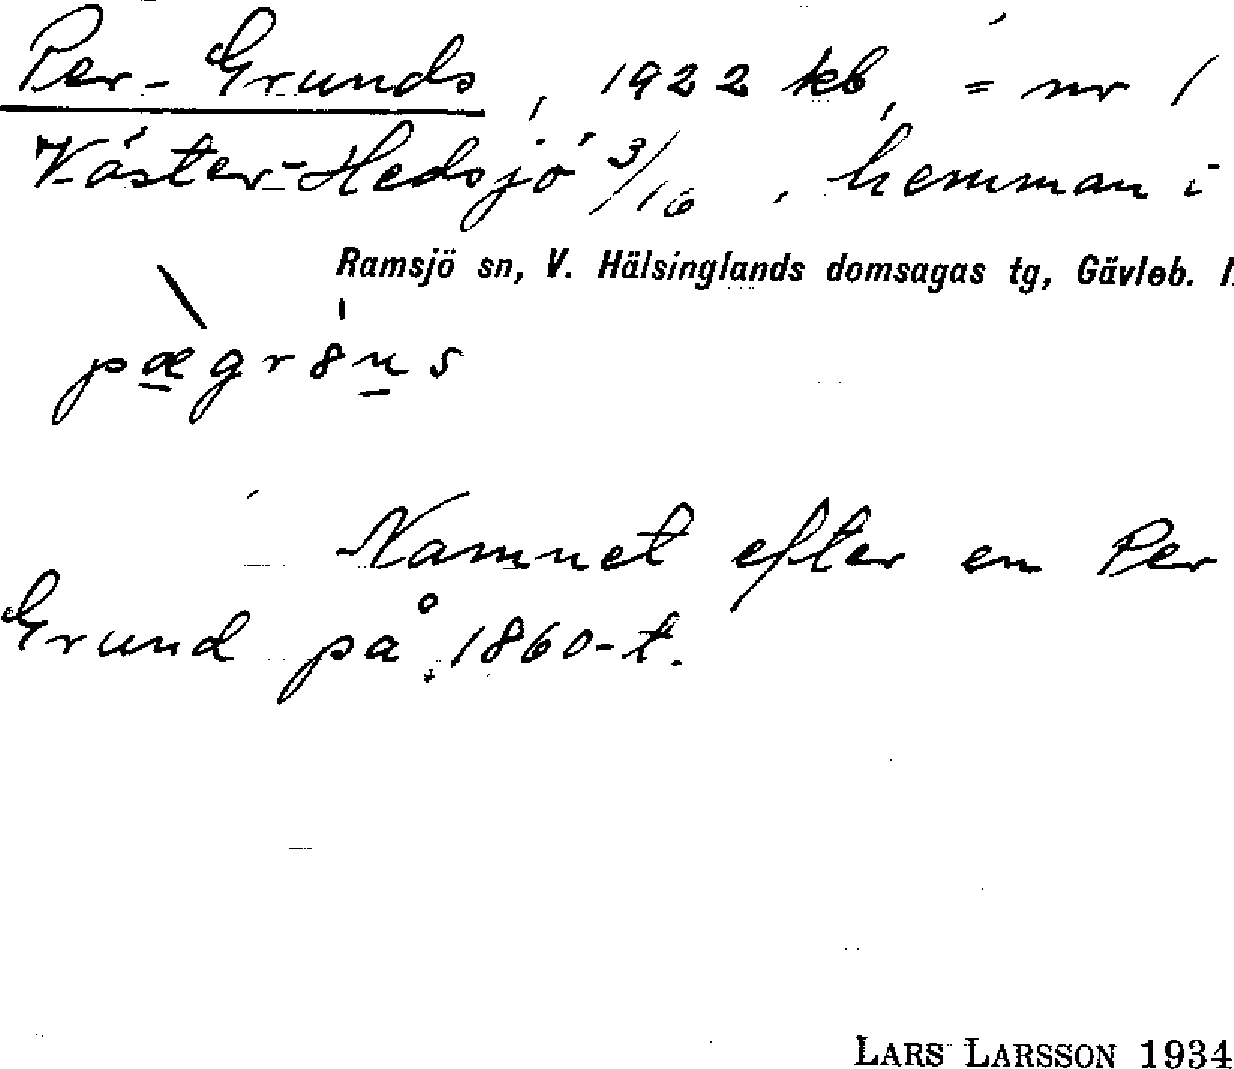 Per-Grunds, 1922 kb, = nr 1
Väster-Hedsjö 3/16, hemman i
Ramsjö sn, V. Hälsinglands domsagas tg, Gävleb. l.
pægr8ns
Namnet efter en Per
Grund på 1860-t.
LARS LARSSON 1934